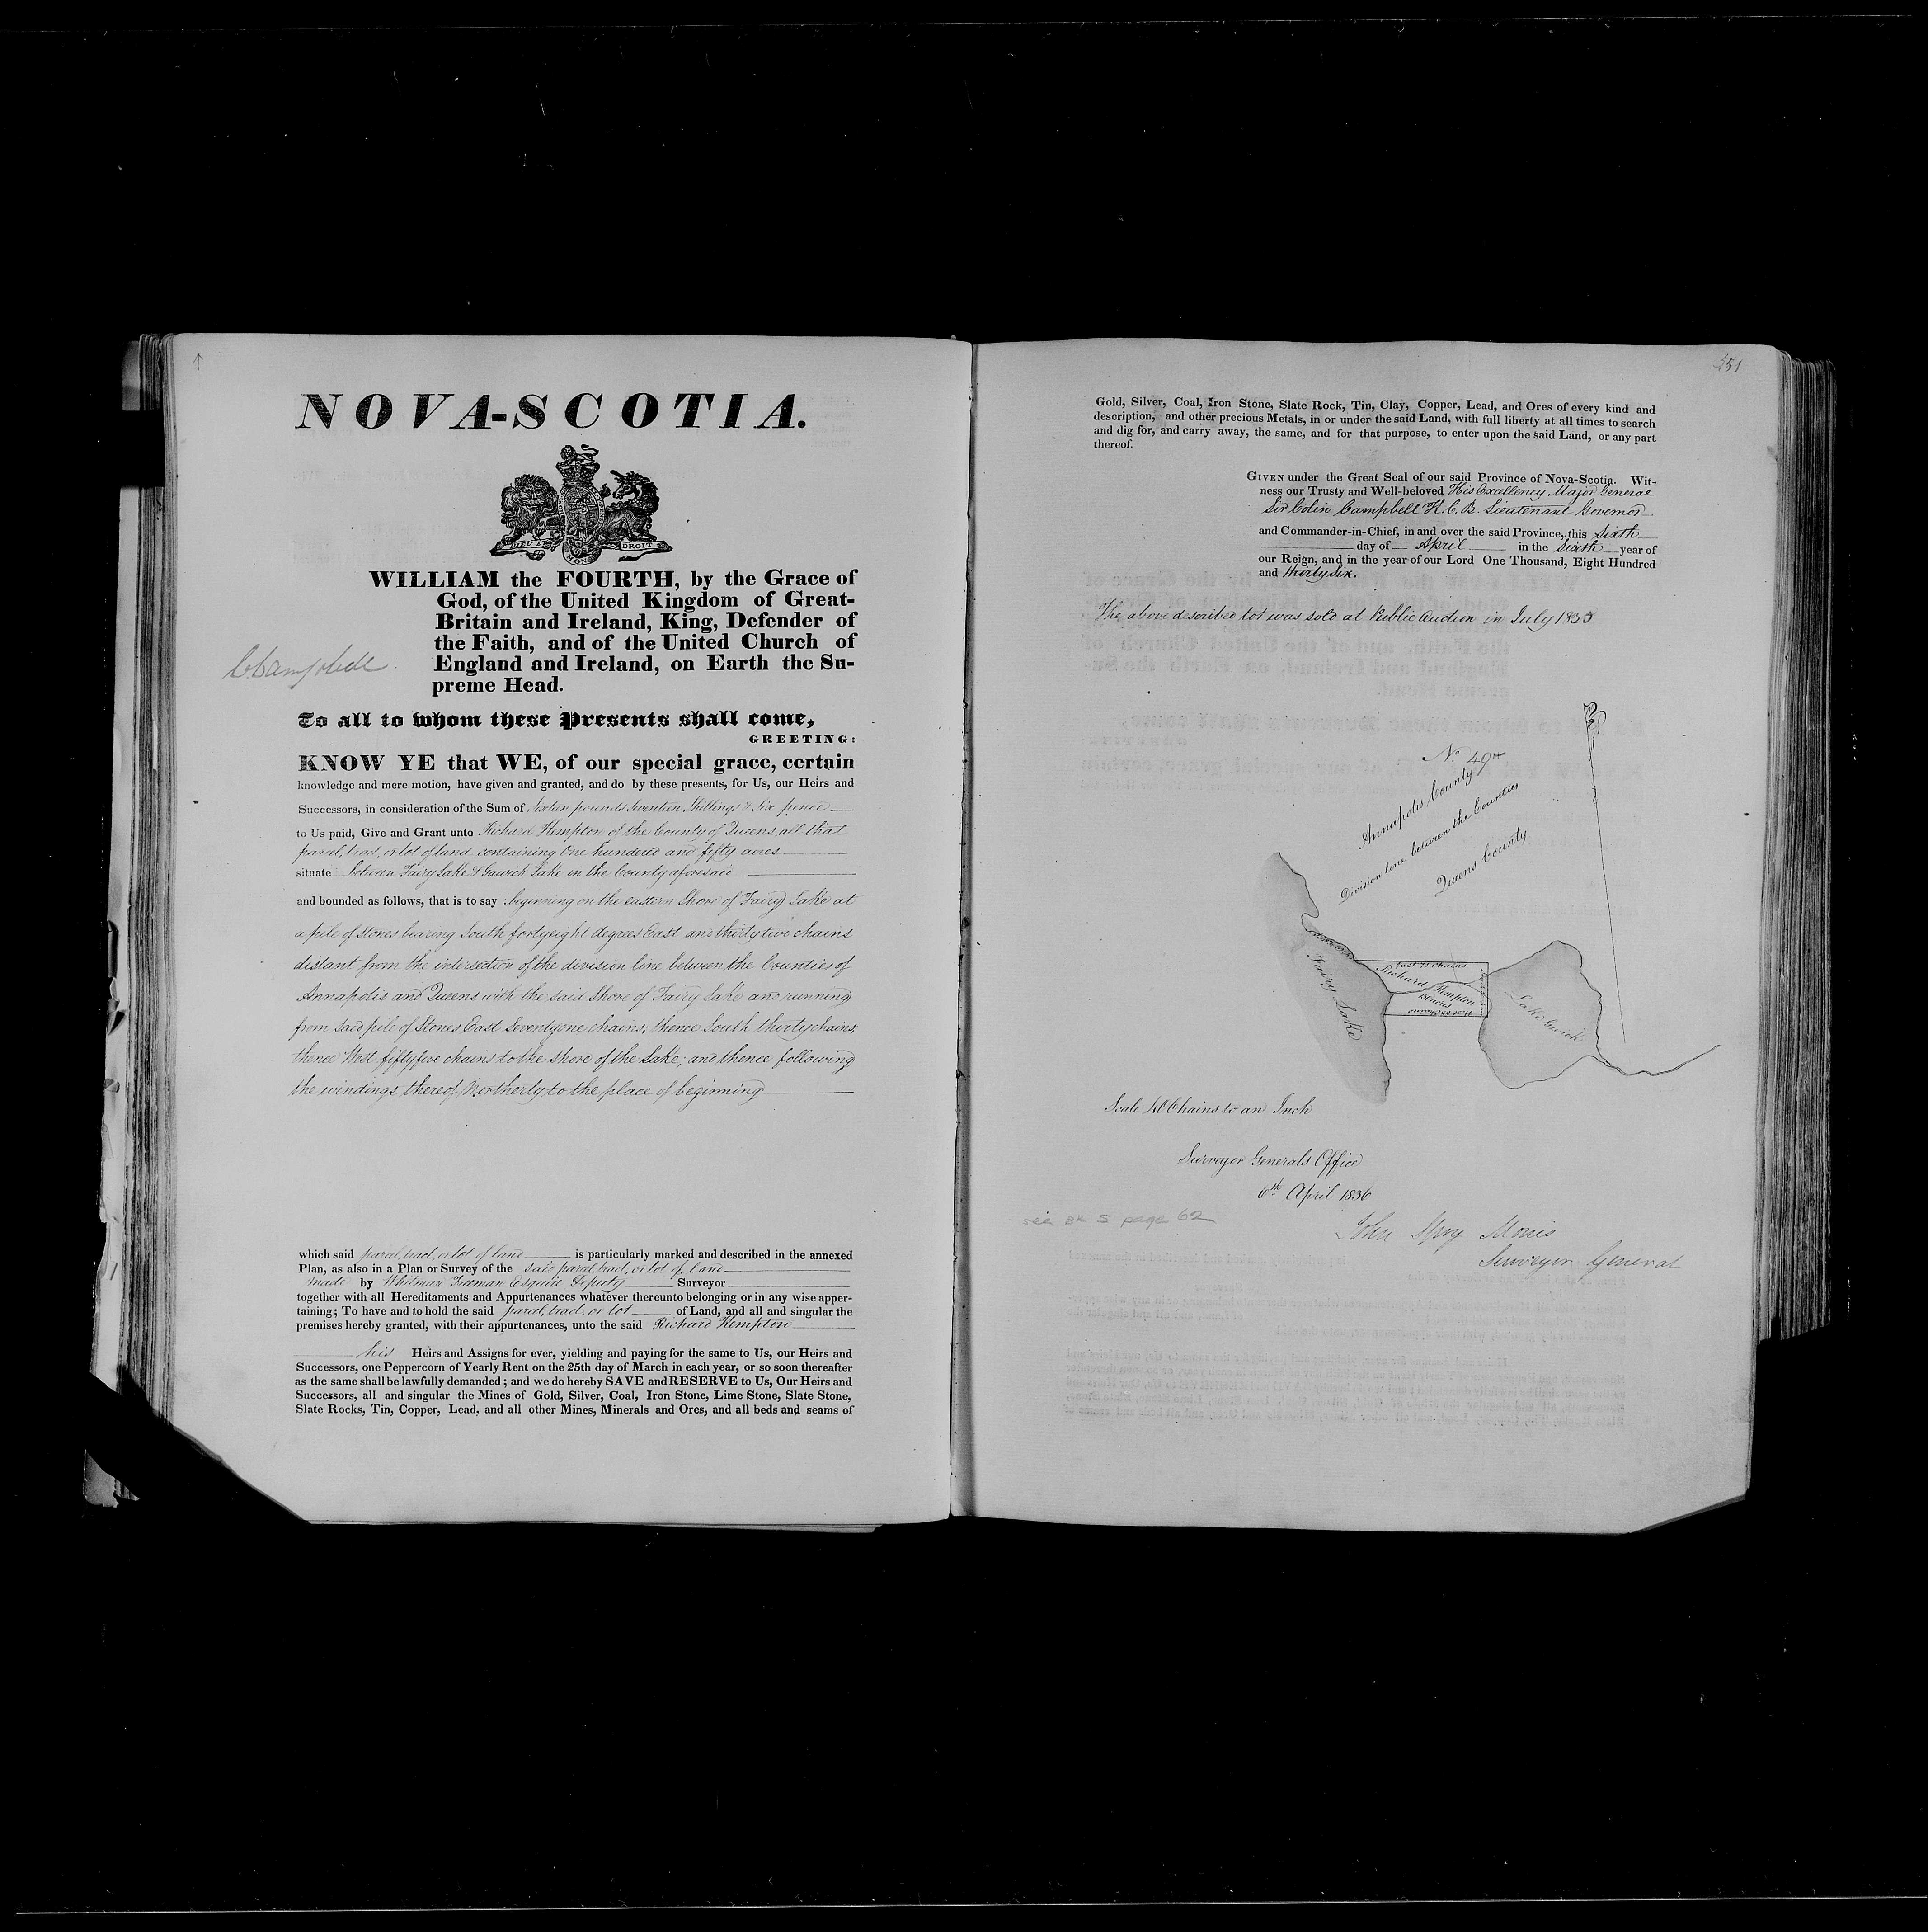 NOVA-SCOTIA.
DIEU ET MON DROIT
WILLIAM the FOURTH, by the Grace of
God, of the United Kingdom of Great-
Britain and Ireland, King, Defender of
the Faith, and of the United Church of
England and Ireland, on Earth the Su-
preme Head.
C Campbell
To all to whom these Presents shall come,
GREETING:
KNOW YE that WE, of our special grace, certain
knowledge and mere motion, have given and granted, and do by these presents, for Us, our Heirs and
Successors, in consideration of the Sum of Sixteen pounds Seventeen Shillings & Six pence
to Us paid, Give and Grant unto Richard Kempton of the County of Queens all that
parcel, tract, or lot of land containing One hundred and fifty acres
situate between Fairy Lake & Lake in the County aforesaid
and bounded as follows, that is to say beginning on the eastern Shore of Fairy Lake at
a pile of Stones bearing South forty eight degrees East and thirty two chains
distant from the intersection of the division line between the Counties of
Annapolis and Queens with the said Shore of Fairy Lake and running
from said pile of Stones East Seventy one chains; thence South thirty chains;
thence West fifty five chains to the Shore of the Lake; and thence following
the windings thereof Northerly to the place of beginning
which said parcel, tract, or lot of land is particularly marked and described in the annexed
Plan, as also in a Plan or Survey of the said parcel, tract, or lot of land
made by Whitman Freeman Esquire Deputy Surveyor
together with all Hereditaments and Appurtenances whatever thereunto belonging or in any wise apper-
taining; To have and to hold the said parcel, tract, or lot of Land, and all and singular the
premises hereby granted, with their appurtenances, unto the said Richard Kempton
his Heirs and Assigns for ever, yielding and paying for the same to Us, our Heirs and
Successors, one Peppercorn of Yearly Rent on the 25th day of March in each year, or so soon thereafter
as the same shall be lawfully demanded; and we do hereby SAVE and RESERVE to Us, Our Heirs and
Successors, all and singular the Mines of Gold, Silver, Coal, Iron Stone, Lime Stone, Slate Stone,
Slate Rocks, Tin, Copper, Lead, and all other Mines, Minerals and Ores, and all beds and seams of
151
Gold, Silver, Coal, Iron Stone, Slate Rock, Tin, Clay, Copper, Lead, and Ores of every kind and
description, and other precious Metals, in or under the said Land, with full liberty at all times to search
and dig for, and carry away, the same, and for that purpose, to enter upon the said Land, or any part
thereof.
GIVEN under the Great Seal of our said Province of Nova-Scotia. Wit-
ness our Trusty and Well-beloved His Excellency Major General
Sir Colin Campbell K.C.B. Lieutenant Governor
and Commander-in-Chief, in and over the said Province, this Sixth
day of April in the Sixth year of
our Reign, and in the year of our Lord One Thousand, Eight Hundred
and thirty Six.
The above described lot was sold at Public Auction in July 1835
No. 497
Annapolis County
Division line between the Counties
Queens County
Fairy Lake
East 71 Chains
Richard Kempton
150 acres
West 55 Chains
Lake
Scale 40 Chains to an Inch
Surveyor Generals Office
6th April 1836
see BK S page 62
John Spry Morris
Surveyor General